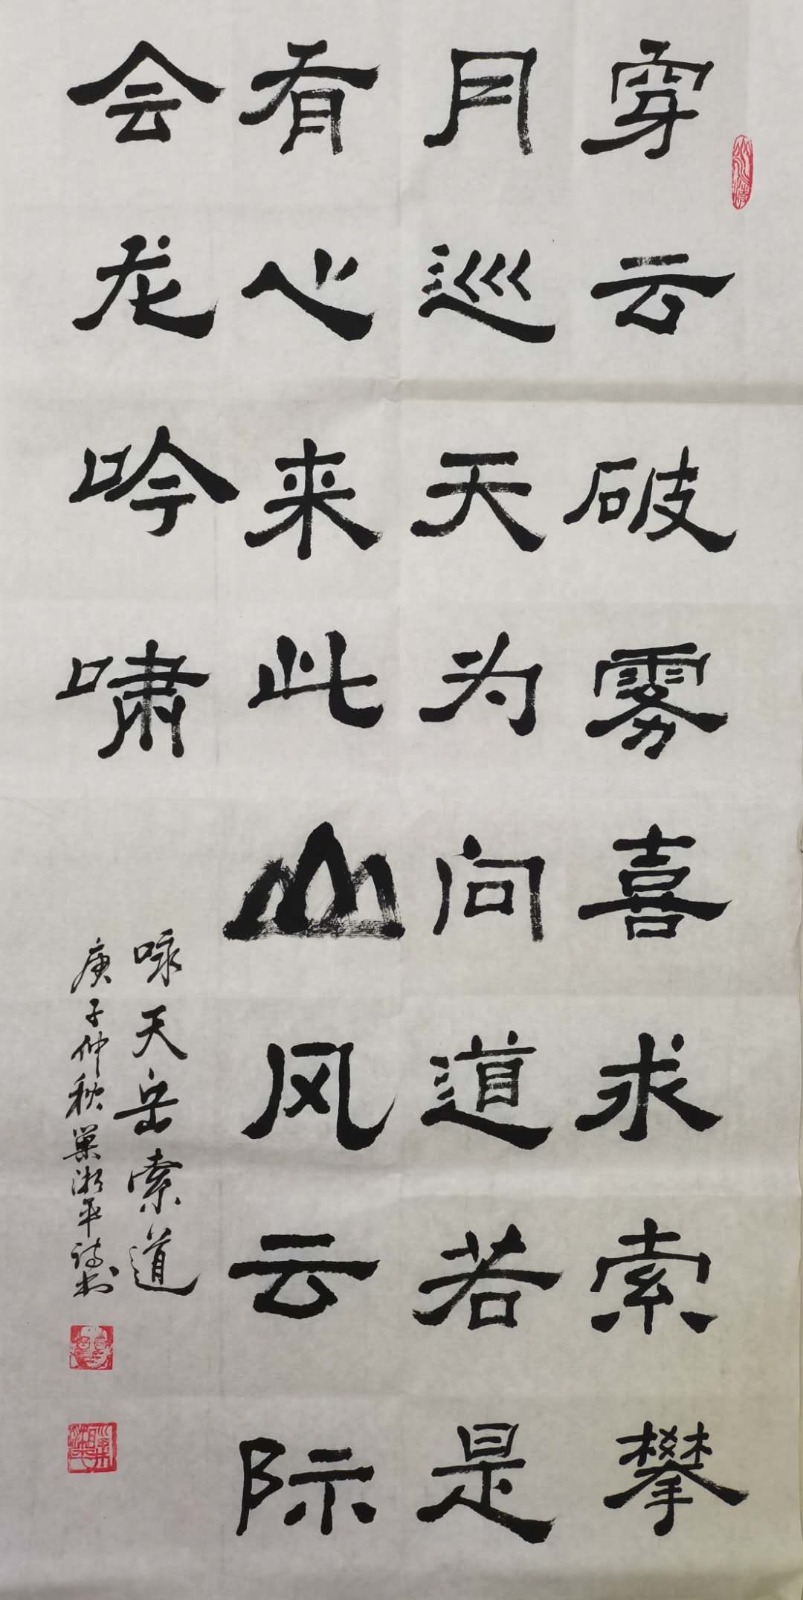 穿云破雾喜求索攀
月巡天为问道若是
有心来此山风云际
会龙吟啸
咏天岳索道
庚子仲秋巢湘平诗书